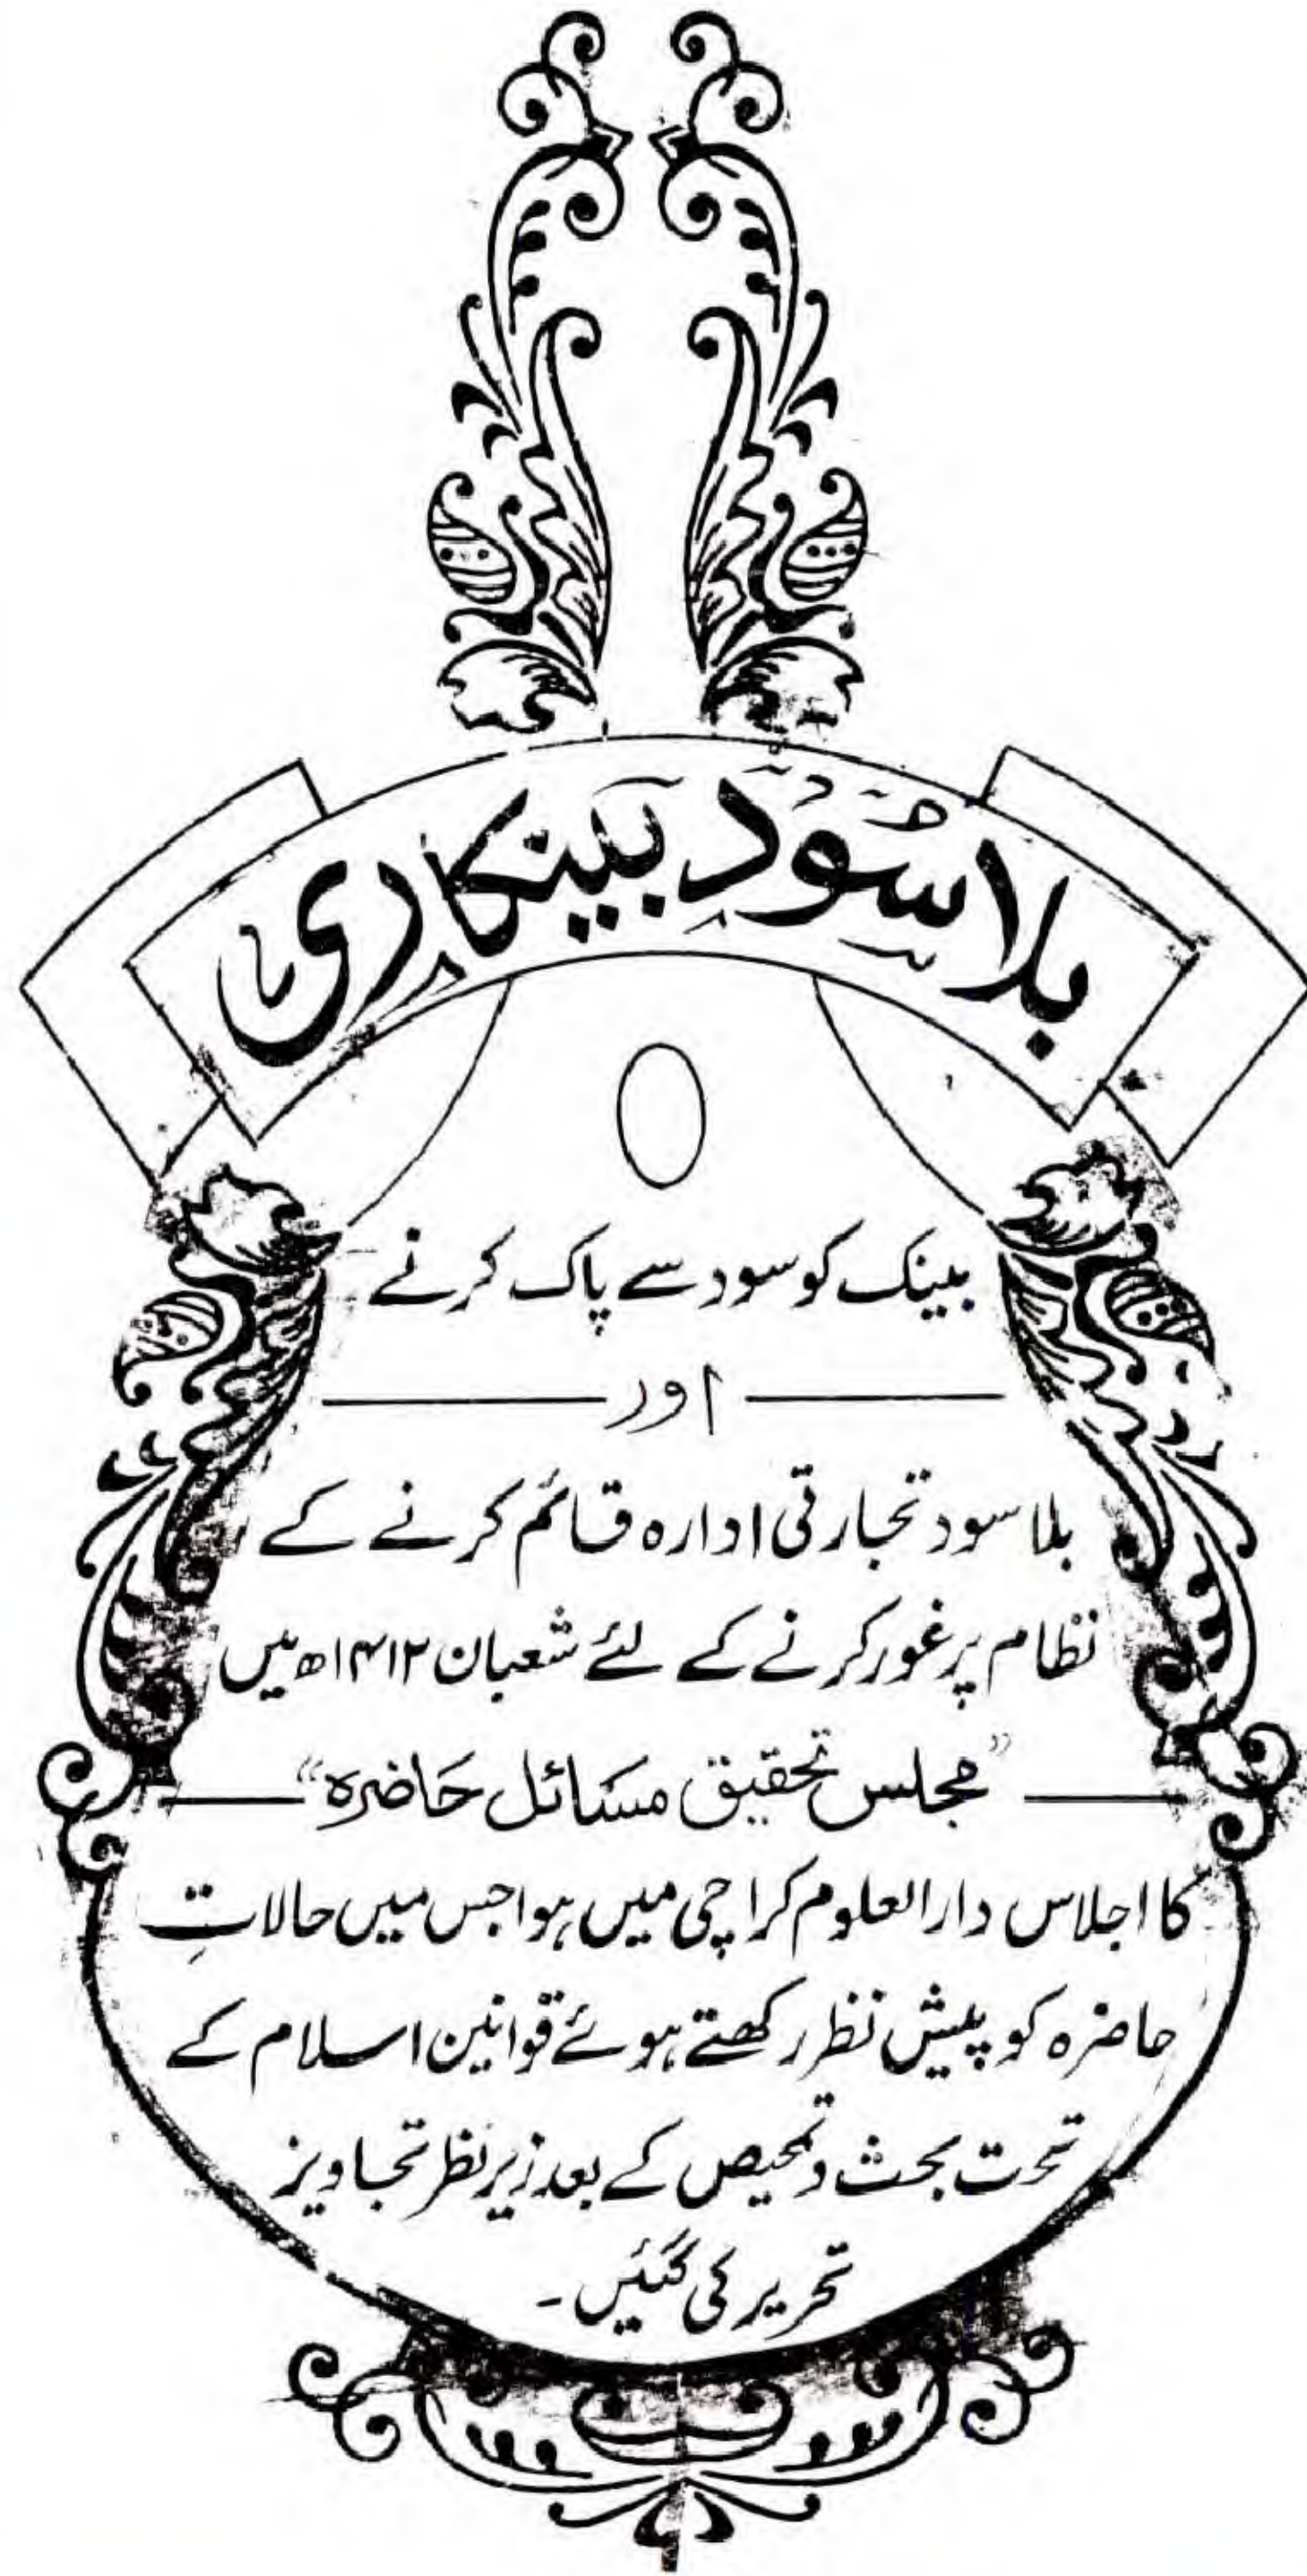 بلا سُود بینکاری
بینک کو سود سے پاک کرنے
اور
بلا سود تجارتی ادارہ قائم کرنے کے
نظام پر غور کرنے کے لئے شعبان ۱۴۱۲ھ میں
”مجلس تحقیق مسائل حاضرہ“
کا اجلاس دارالعلوم کراچی میں ہوا جس میں حالاتِ
حاضرہ کو پیش نظر رکھتے ہوئے قوانین اسلام کے
تحت بحث و تمحیص کے بعد زیر نظر تجاویز
تحریر کی گئیں ۔